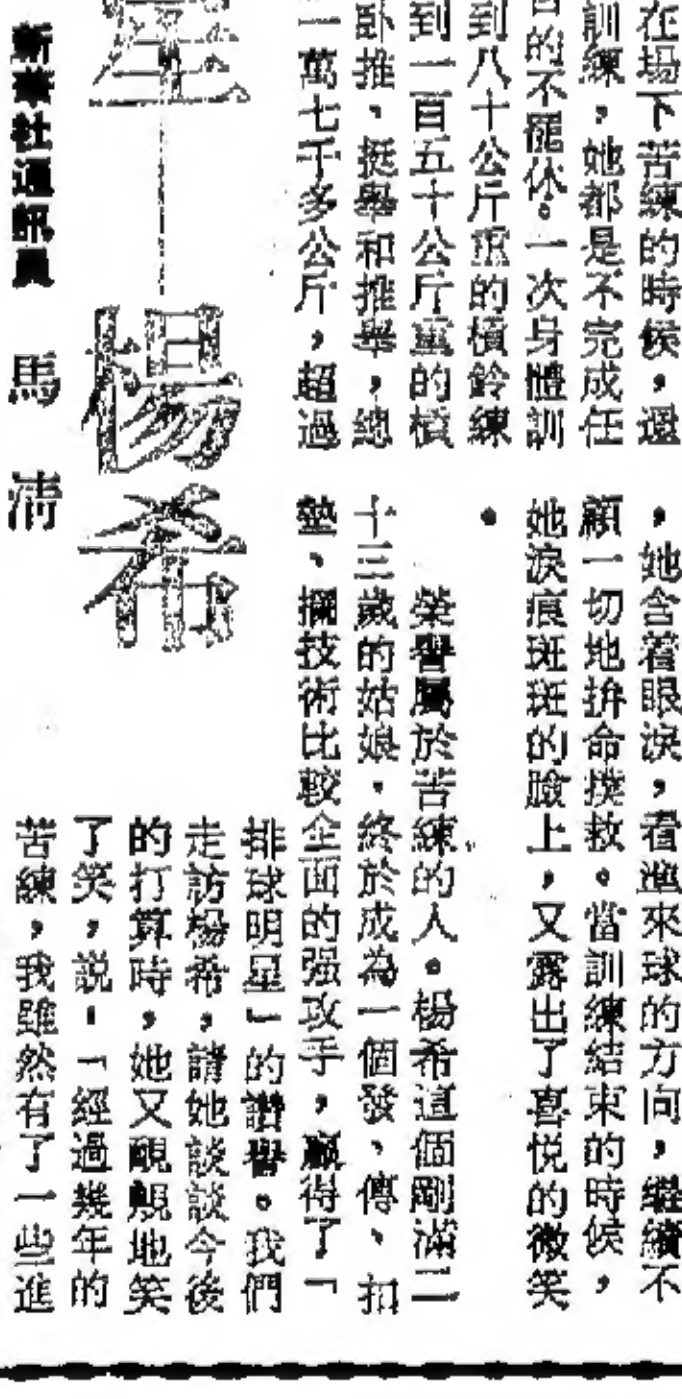 在場下苦練的時候，還
訓練，她都是不完成任
的不罷休。一次身體訓
到八十公斤重的槓鈴練
到一百五十公斤重的槓
卧推、挺舉和推舉，總
一萬七千多公斤，超過
，她含着眼淚，看準來球的方向，繼續不
顧一切地拚命撲救。當訓練結束的時候，
她淚痕斑斑的臉上，又露出了喜悅的微笑
。
榮譽屬於苦練的人。楊希這個剛滿二
十三歲的姑娘，終於成為一個發、傳、扣
墊、攔技術比較全面的强攻手，贏得了「
排球明星」的讚譽。我們
走訪楊希，請她談談今後
的打算時，她又靦覥地笑
了笑，説：「經過幾年的
苦練，我雖然有了一些進
星——楊希
新華社通訊員　馬清